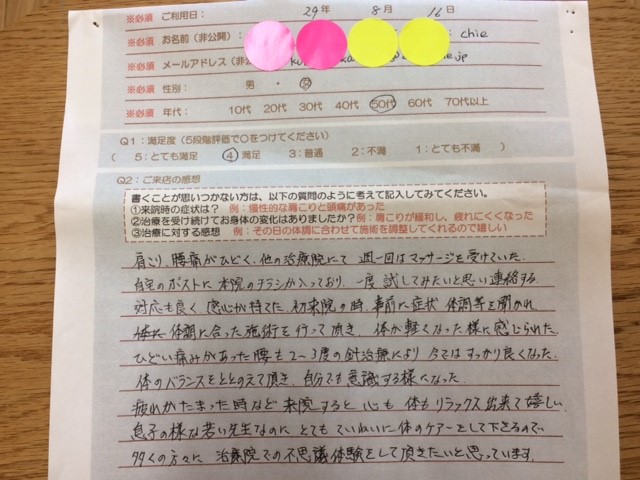 ※必須 ご利用日： 29年 8月 16日
※必須 お名前（非公開）： chie
※必須 メールアドレス（非公
※必須 性別： 男 ・ 女
※必須 年代： 10代 20代 30代 40代 50代 60代 70代以上
Q1：満足度（5段階評価で○をつけてください）
（ 5：とても満足 4：満足 3：普通 2：不満 1：とても不満 ）
Q2：ご来店の感想
書くことが思いつかない方は、以下の質問のように考えて記入してみてください。
①来院時の症状は？ 例：慢性的な肩こりと頭痛があった
②治療を受け続けてお身体の変化はありましたか？例：肩こりが緩和し、疲れにくくなった
③治療に対する感想 例：その日の体調に合わせて施術を調整してくれるので嬉しい
肩こり、腰痛がひどく、他の治療院にて 週一回はマッサージを受けていた。
自宅のポストに本院のチラシが入っており、一度試してみたいと思い連絡する。
対応も良く、感心が持てた。初来院の時、事前に症状 体調等を聞かれ
体調に合った施術を行って頂き、体が軽くなった様に感じられた。
ひどい痛みがあった腰も2〜3度の針治療により 今ではすっかり良くなった。
体のバランスをととのえて頂き、自分でも意識する様になった。
疲れがたまった時など来院すると 心も体もリラックス出来て嬉しい。
息子の様な若い先生なのに とてもていねいに体のケアーをして下さるので、
多くの方々に 治療院での不思議体験をして頂きたいと思っています。